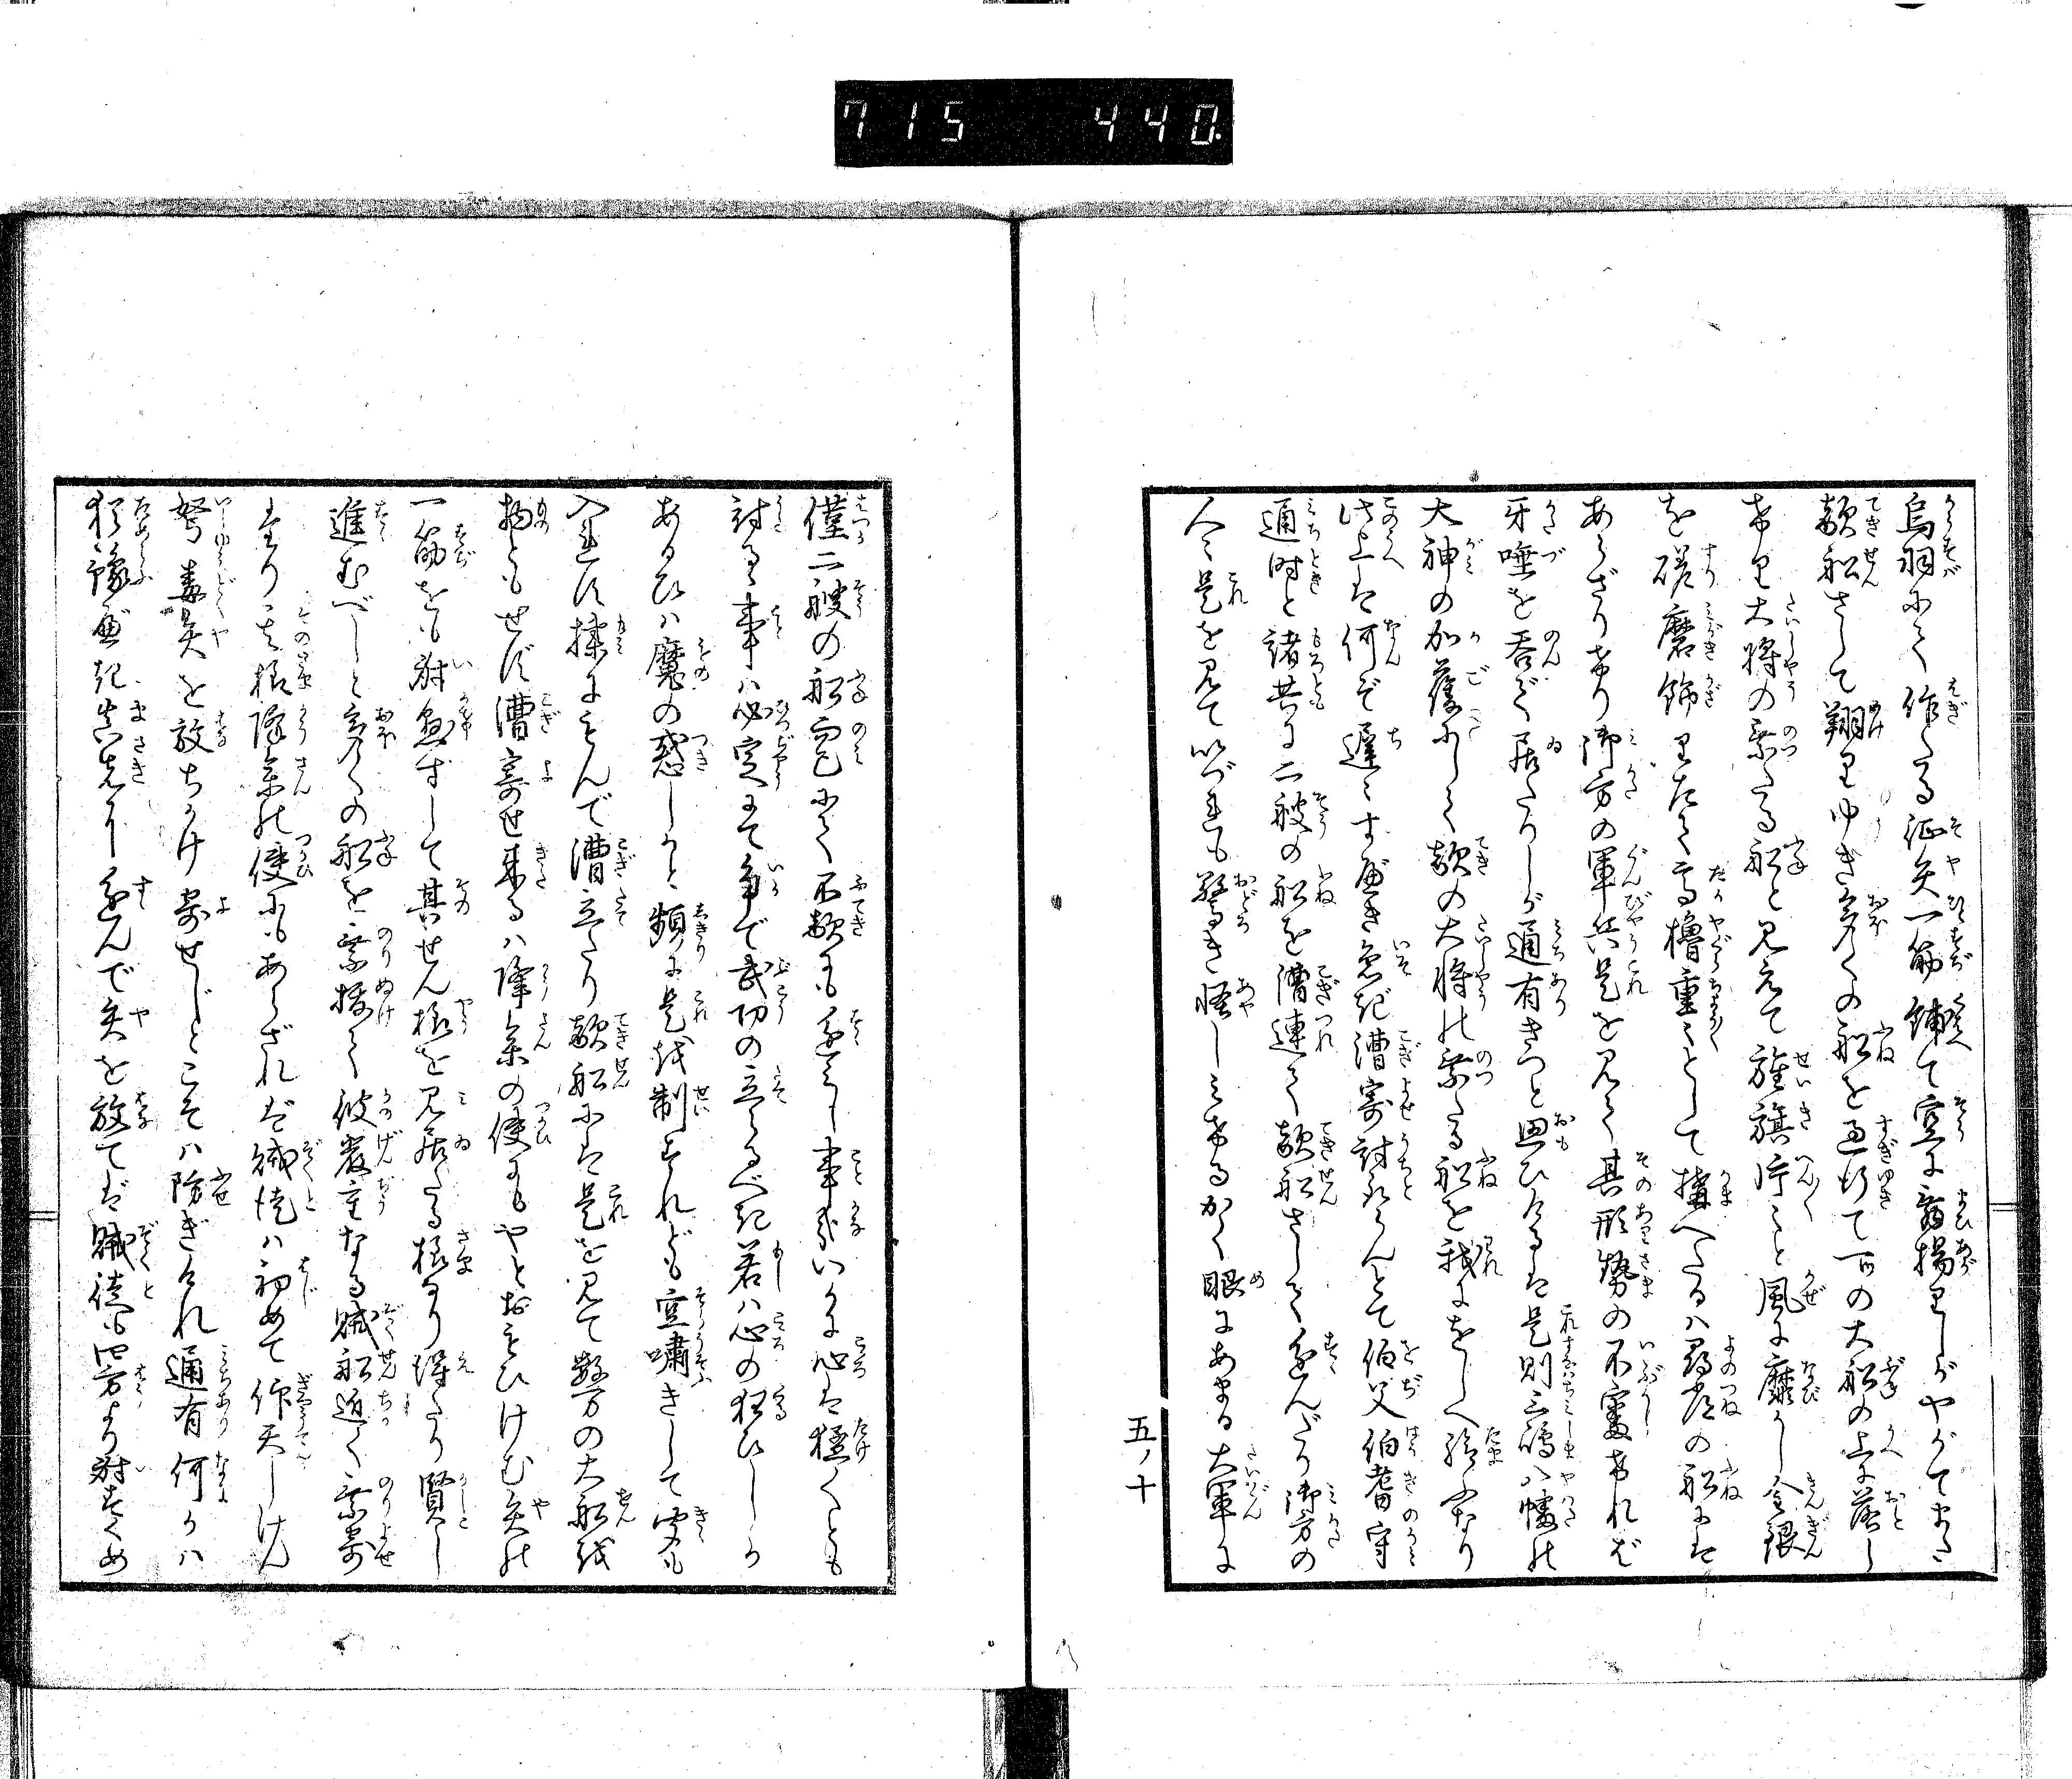 715 440
烏羽にて作たる征矢一筋銜て空に翥揚りしがやがてまた
敵船さして翔りゆき多くの船を過行て一の大船の上に落し
けり大将の乗たる船と見えて旌旗片々と風に靡かし金銀
を磋磨飾りたて高櫓重々として構へたるハ尋常の船にハ
あらざりけり御方の軍兵是を見て其形勢の不審けれバ
牙唾を呑で居たりしが通有きつと思ひけるハ是則三嶋八幡の
大神の加護にして敵の大将の乗たる船を我にをしへ給ふなり
此上ハ何ぞ遅々すべき急ぎ漕寄討取らんとて伯父伯耆守
通時と諸共に二艘の船を漕連て敵船さして進んだり御方の
人々是を見ていづれも驚き怪しみけるかく眼にあまる大軍に
五ノ十
僅二艘の船而已にて不敵にも進みし事哉いかに心ハ猛くとも
討るゝ事ハ必定にて争で武功の立らるべき若ハ心の狂ひしか
あるひハ魔の惑しかと頻に是を制すれども空嘯きして聞も
入れず揉にもんで漕立たり敵船にハ是を見て数万の大船を
物ともせず漕寄せ来るハ降参の使にもやとおもひけむ矢の
一筋をも射懸ずして其せん様を見居たる様なり得たり賢し
進むべしと多くの船を乗抜て彼厳重なる賊船近く乗寄
たり其様降参の使にもあらざれバ賊徒ハ初めて仰天しけん
弩毒矢を放ちかけ寄せじとこそハ防ぎけれ通有何かハ
猶豫べき真先に進んで矢を放てバ賊徒も四方より射すくめ